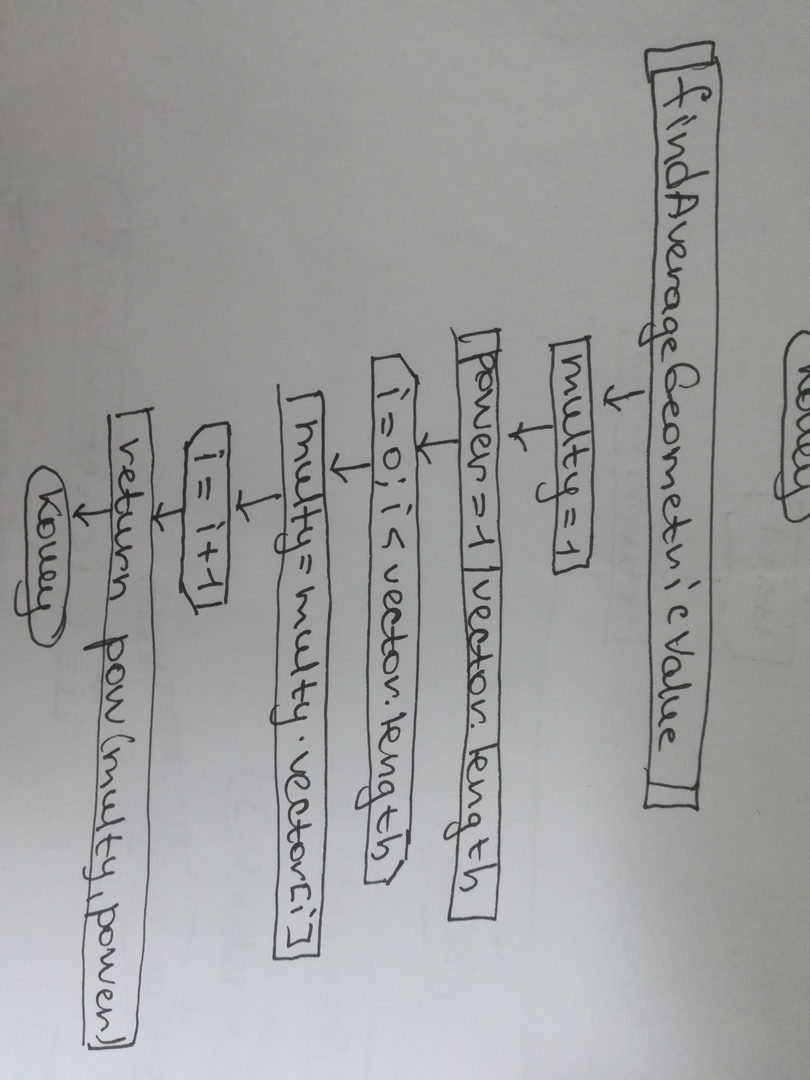 конец
findAverageGeometricValue
multy=1
power=1/vector.length
i=0; i<vector.length
multy=multy·vector[i]
i=i+1
return pow(multy,power)
конец